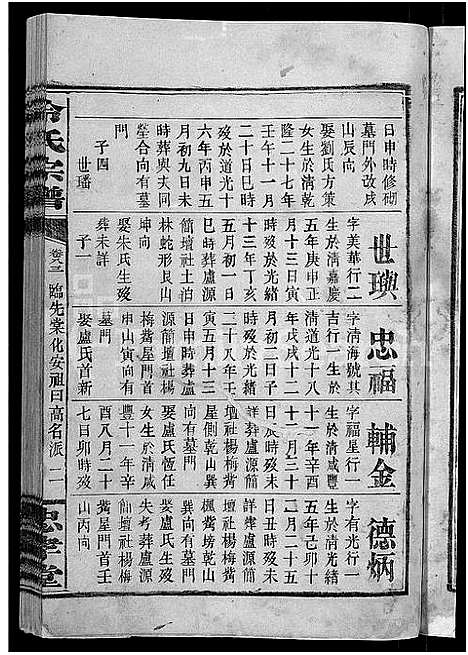 日申時修砌
墓門外改戌
山辰向
娶劉氏方策
女生於清乾
隆二十七年
壬午十一月
二十日巳時
歿於道光十
六年丙申五
月初九日未
時葬與夫同
塋合向有墓
門
子四
世璠
世璵
字美華行二
生於清嘉慶
五年庚申正
月十三日寅
時歿於光緒
十三年丁亥
五月初一日
巳時葬盧源
簡壇社土泊
林蛇形艮山
坤向
娶朱氏生歿
葬未詳
子一
忠福
字清海號其
吉行一生於
清道光十八
年戊戌十二
月初二日子
時歿於光緒
二十八年壬
寅五月十三
日申時葬盧
源簡壇社楊
梅薋屋門首
申山寅向有
墓門
娶盧氏首新
輔金
字福星行一
生於清咸豐
十一年辛酉
十一月三十
日辰時歿未
詳葬盧源簡
壇社楊梅薋
屋側乾山巽
向有墓門
娶盧氏恆任
女生於清咸
豐十一年辛
酉八月二十
七日卯時歿
德炳
字有光行一
生於清光緒
五年己卯十
二月二十五
日丑時歿未
詳葬盧源簡
壇社楊梅薋
楓塝乾山
巽向有墓門
娶盧氏生歿
失考葬盧源
簡壇社楊梅
薋屋門首壬
山丙向
冷氏宗譜
臨先棠化安祖曰高名派
忠孝堂